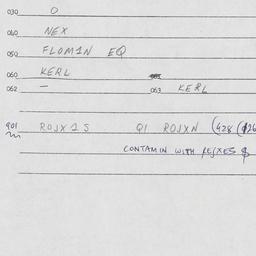 030 O
040 NEX
050 FLOMIN EQ
060 KERL
062 - 063 KERL
901 ROJX 1 S Q1 ROJXN (428 (
CONTAMIN WITH $